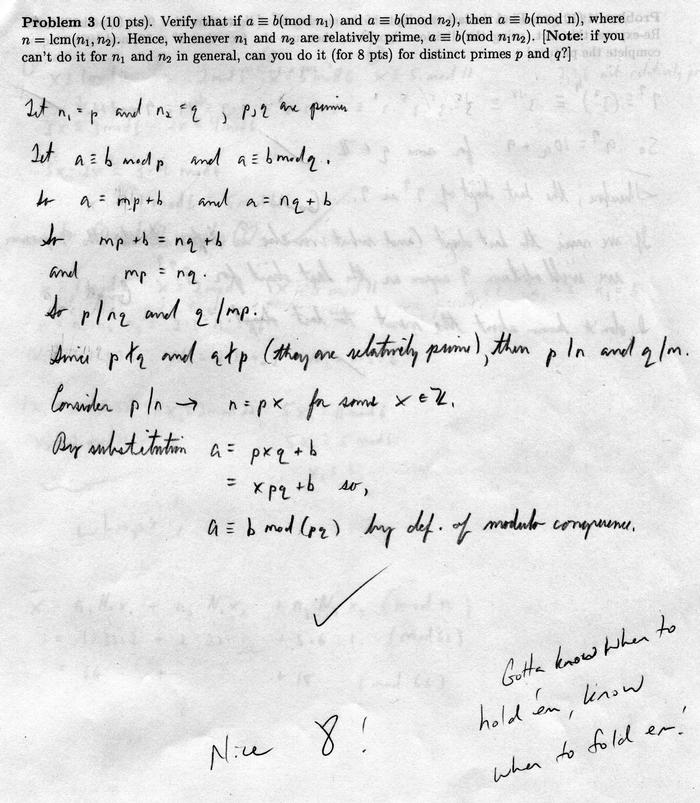 Problem 3 (10 pts). Verify that if a ≡ b(mod n₁) and a ≡ b(mod n₂), then a ≡ b(mod n), where
n = lcm(n₁, n₂). Hence, whenever n₁ and n₂ are relatively prime, a ≡ b(mod n₁n₂). [Note: if you
can't do it for n₁ and n₂ in general, can you do it (for 8 pts) for distinct primes p and q?]
Let n₁ = p and n₂ = q , p,q are primes
Let a ≡ b mod p and a ≡ b mod q .
So a = mp + b and a = nq + b
So mp + b = nq + b
and mp = nq .
So p | nq and q | mp .
Since p ∤ q and q ∤ p (they are relatively prime), then p | n and q | m .
Consider p | n → n = px for some x ∈ ℤ .
By substitution a = pxq + b
= xpq + b so,
a ≡ b mod (pq) by def. of modulo congruence.
✓
Gotta know when to
hold 'em, know
when to fold em!
Nice 8 !